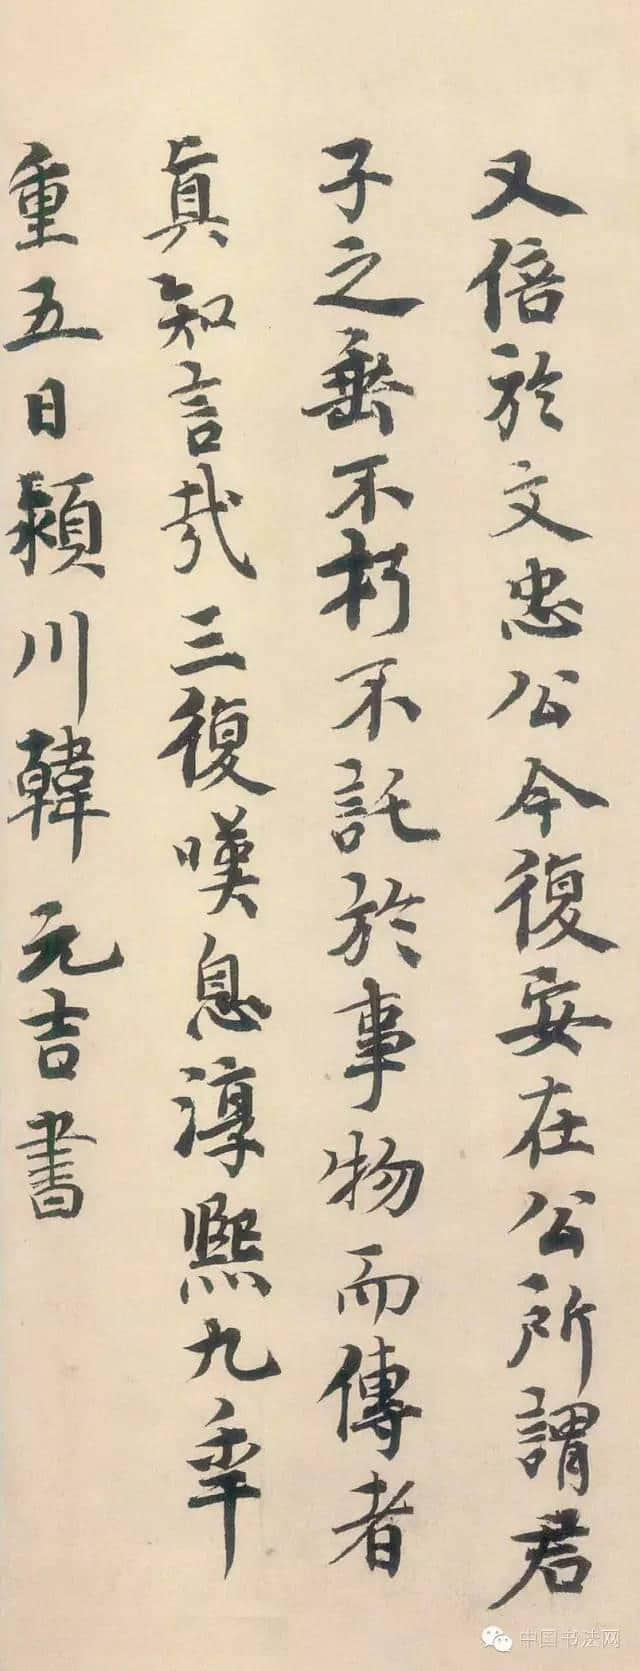 又倍於文忠公今復安在公所謂君
子之垂不朽不託於事物而傳者
真知言哉三復嘆息淳熙九年
重五日潁川韓元吉書
中国书法网